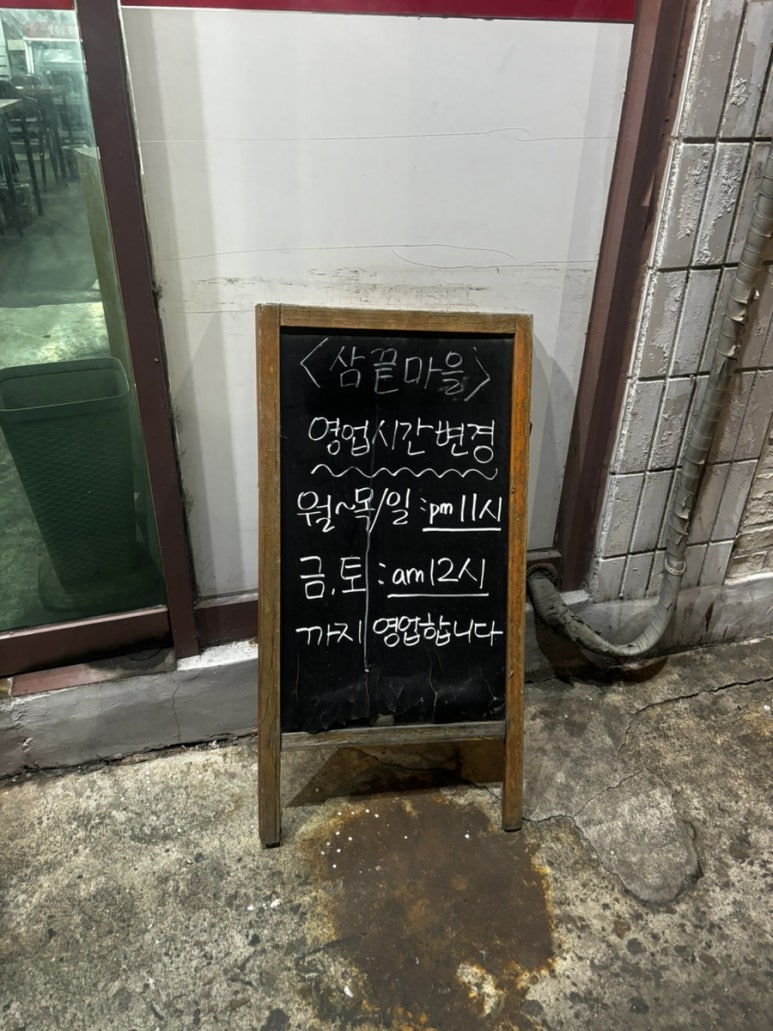 <삼끝마을>
영업시간변경
월~목/일:pm11시
금,토:am12시
까지 영업합니다